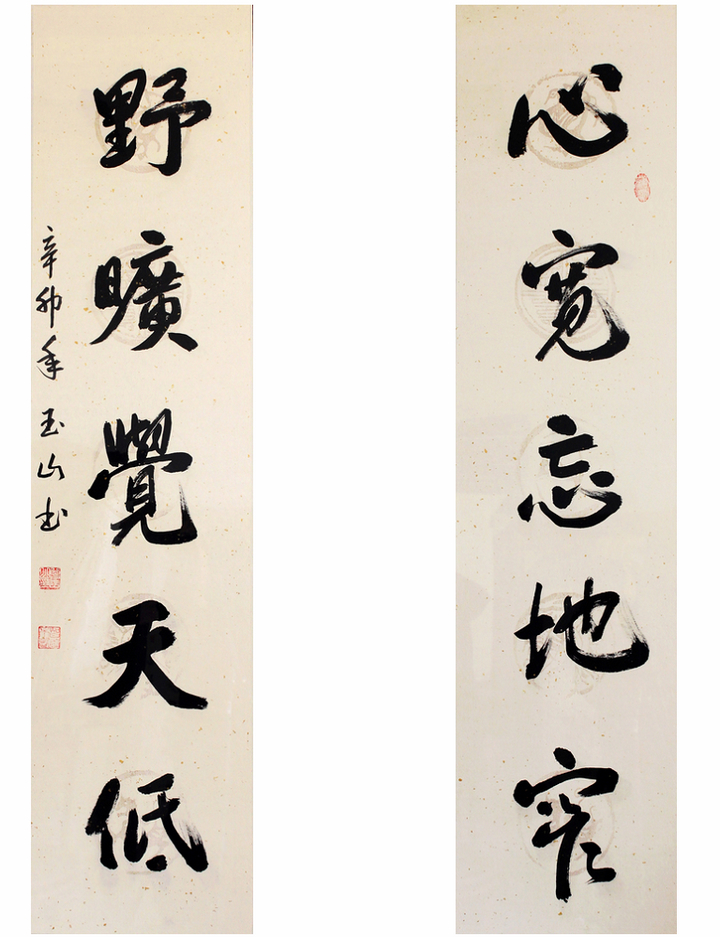 心寬忘地窄
野曠覺天低
辛卯年玉山書